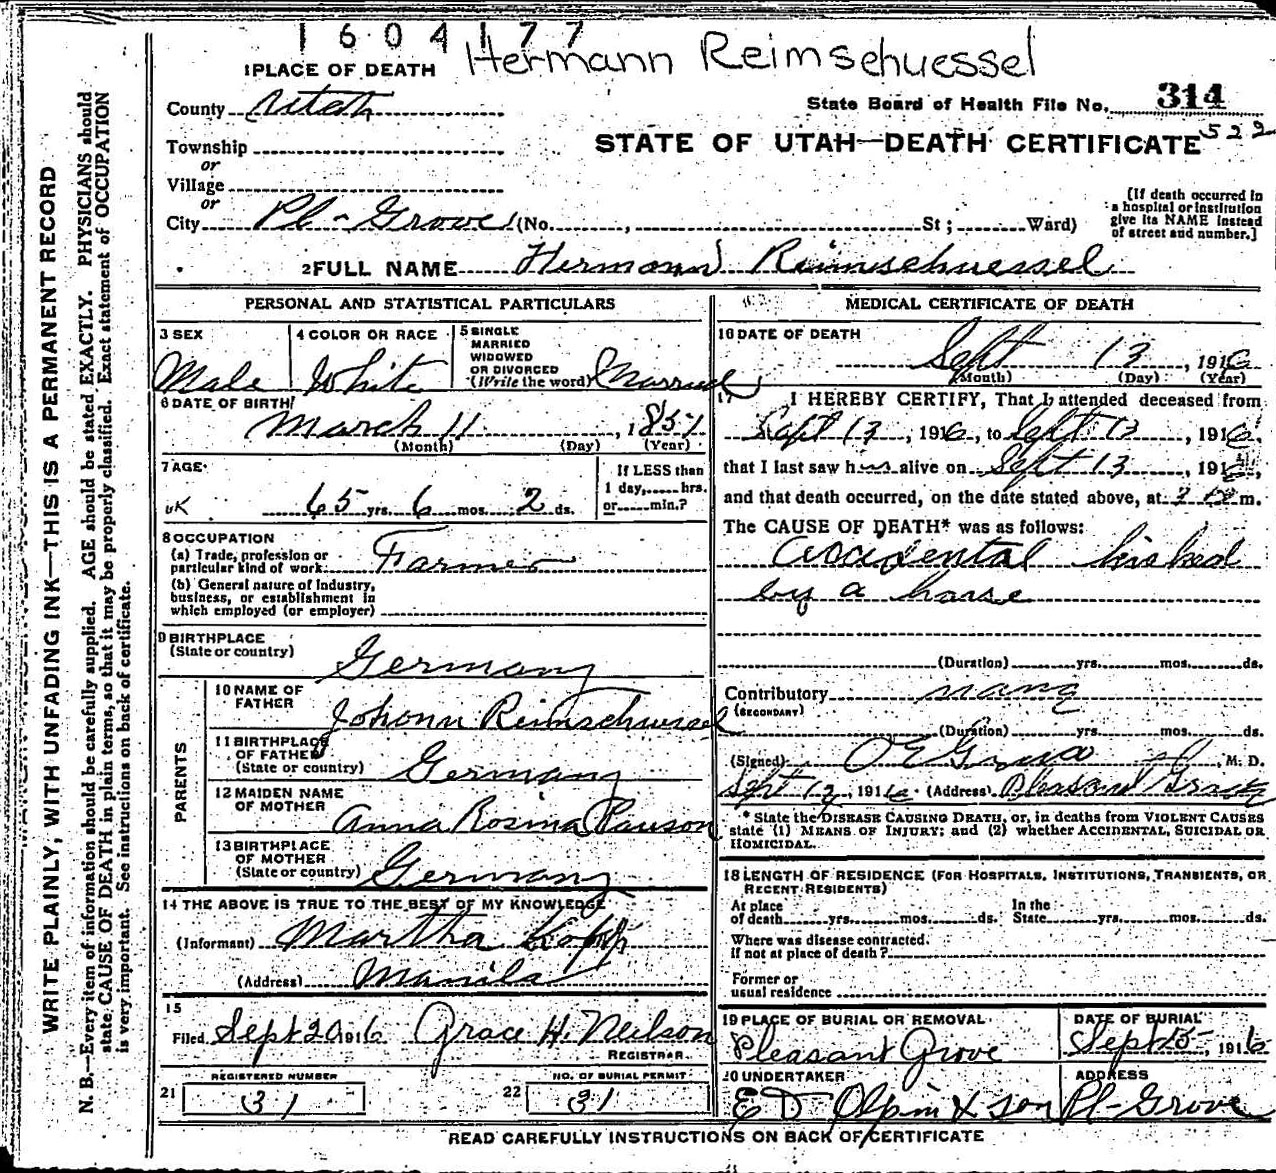 1604177
Hermann Reimschuessel
1 PLACE OF DEATH
County Utah
State Board of Health File No. 314
STATE OF UTAH—DEATH CERTIFICATE 522
Township
or
Village
or
City Pl-Grove (No. , St; Ward)
[If death occurred in
a hospital or institution
give its NAME instead
of street and number.]
2 FULL NAME Hermann Reimschuessel
PERSONAL AND STATISTICAL PARTICULARS
3 SEX
Male
4 COLOR OR RACE
White
5 SINGLE
MARRIED
WIDOWED
OR DIVORCED
(Write the word) Married
6 DATE OF BIRTH
March 11, 1851
(Month) (Day) (Year)
7 AGE
65 yrs. 6 mos. 2 ds.
If LESS than
1 day, hrs.
or min.?
8 OCCUPATION
(a) Trade, profession or
particular kind of work Farmer
(b) General nature of industry,
business, or establishment in
which employed (or employer)
9 BIRTHPLACE
(State or country) Germany
PARENTS
10 NAME OF
FATHER Johann Reimschuessel
11 BIRTHPLACE
OF FATHER
(State or country) Germany
12 MAIDEN NAME
OF MOTHER Anna Rosina
13 BIRTHPLACE
OF MOTHER
(State or country) Germany
14 THE ABOVE IS TRUE TO THE BEST OF MY KNOWLEDGE
(Informant) Martha Kopp
(Address) Manila
15
Filed Sept 20 1916 Grace H. Neilson
REGISTRAR
REGISTERED NUMBER
21 31
NO. OF BURIAL PERMIT
22 31
MEDICAL CERTIFICATE OF DEATH
16 DATE OF DEATH
Sept 13, 1916
(Month) (Day) (Year)
17 I HEREBY CERTIFY, That I attended deceased from
Sept 13, 1916, to Sept 13, 1916,
that I last saw him alive on Sept 13, 1916,
and that death occurred, on the date stated above, at m.
The CAUSE OF DEATH* was as follows:
Accidental kicked
by a horse
(Duration) yrs. mos. ds.
Contributory
(SECONDARY)
(Duration) yrs. mos. ds.
(Signed) O E Grua, M. D.
Sept 13, 1916 (Address) Pleasant Grove
* State the DISEASE CAUSING DEATH, or, in deaths from VIOLENT CAUSES
state (1) MEANS OF INJURY; and (2) whether ACCIDENTAL, SUICIDAL OR
HOMICIDAL.
18 LENGTH OF RESIDENCE (FOR HOSPITALS, INSTITUTIONS, TRANSIENTS, OR
RECENT RESIDENTS)
At place
of death yrs. mos. ds.
In the
State yrs. mos. ds.
Where was disease contracted.
If not at place of death?
Former or
usual residence
19 PLACE OF BURIAL OR REMOVAL
Pleasant Grove
DATE OF BURIAL
Sept 15, 1916
20 UNDERTAKER
E D Olpin & son
ADDRESS
Pl-Grove
READ CAREFULLY INSTRUCTIONS ON BACK OF CERTIFICATE
WRITE PLAINLY, WITH UNFADING INK—THIS IS A PERMANENT RECORD
N. B.—Every item of information should be carefully supplied. AGE should be stated EXACTLY. PHYSICIANS should
state CAUSE OF DEATH in plain terms, so that it may be properly classified. Exact statement of OCCUPATION
is very important. See instructions on back of certificate.